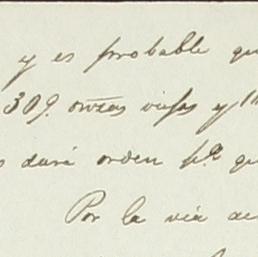 y es probable qu
309. onzas viejas y 1
s dará orden pa. qu
Por la via de